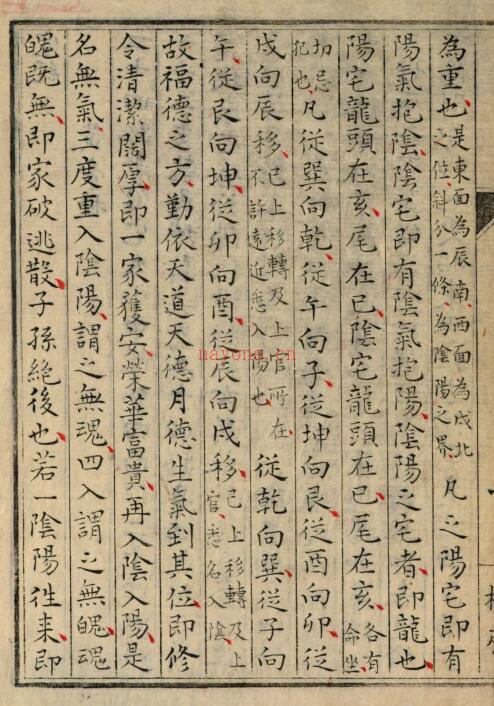 為重也是東面為辰南西面為戌北之位斜分一條為陰陽之界凡之陽宅即有
陽氣抱陰陰宅即有陰氣抱陽陰陽之宅者即龍也
陽宅龍頭在亥尾在巳陰宅龍頭在巳尾在亥各有命坐
切忌犯也凡從巽向乾從午向子從坤向艮從酉向卯從
戌向辰移已上移轉及上官所在不許遠近悉入陽也從乾向巽從子向
午從艮向坤從卯向酉從辰向戌移已上移轉及上官悉名入陰
故福德之方勤依天道天德月德生氣到其位即修
令清潔闊厚即一家獲安榮華富貴再入陰入陽是
名無氣三度重入陰陽謂之無魂四入謂之無魄魂
魄既無即家破逃散子孫絕後也若一陰陽往來即
nayona.cn